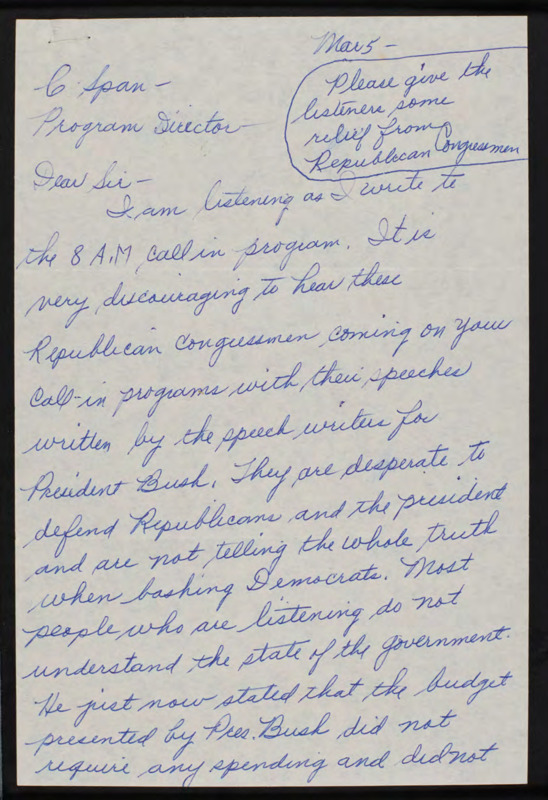 Mar 5 -
Please give the
listeners some
relief from
Republican Congressmen
C-Span -
Program Director -
Dear Sir -
I am listening as I write to
the 8 A.M call in program. It is
very discouraging to hear these
Republican Congressmen coming on your
call-in programs with their speeches
written by the speech writers for
President Bush. They are desperate to
defend Republicans and the president
and are not telling the whole truth
when bashing Democrats. Most
people who are listening do not
understand the state of the government.
He just now stated that the budget
presented by Pres. Bush did not
require any spending and did not